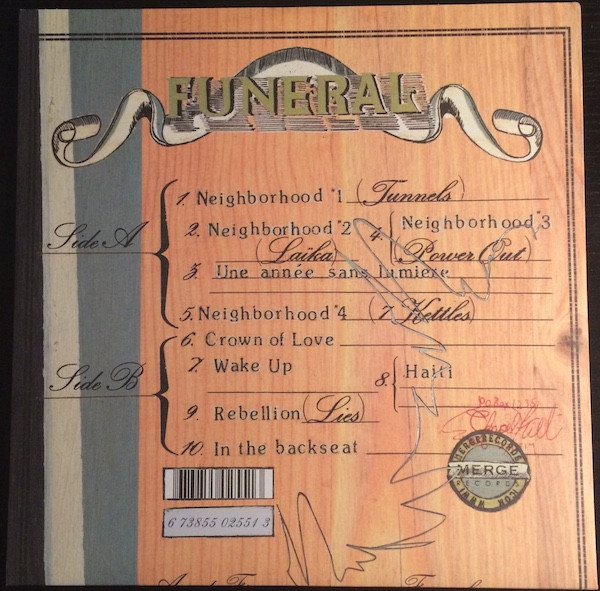 FUNERAL
Side A
1. Neighborhood #1 (Tunnels)
2. Neighborhood #2 (Laïka)
3. Une année sans lumiere
4. Neighborhood #3 (Power Out)
5. Neighborhood #4 (7 Kettles)
Side B
6. Crown of Love
7. Wake Up
8. Haiti
9. Rebellion (Lies)
10. In the backseat
MERGE
RECORDS
6 73855 02551 3